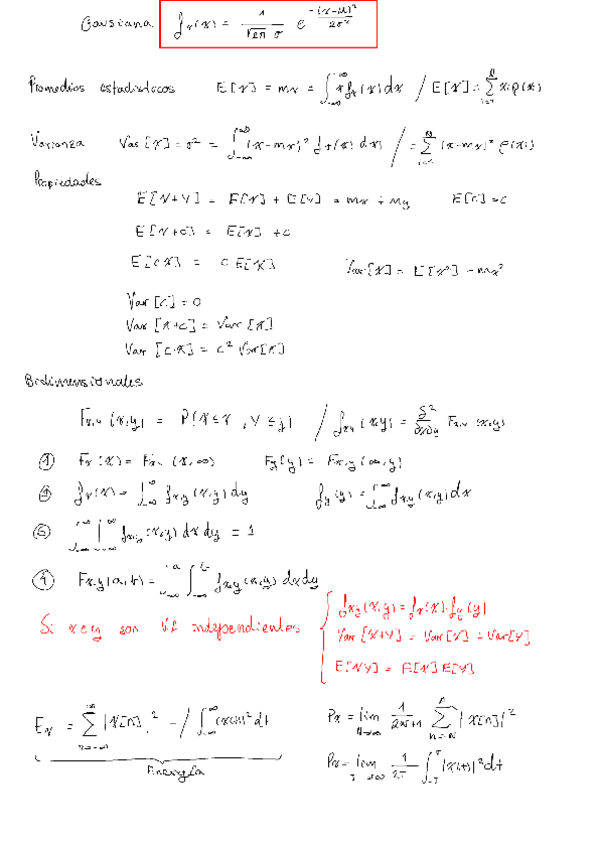 Gausiana f_x(x) = 1/(√2π σ) e^(-(x-μ)²/2σ²)
Promedios estadísticos E[X] = mx = ∫_{-∞}^{+∞} x f_x(x) dx / E[X] = Σ_{i=1}^{N} xi p(xi)
Varianza Var[X] = σ² = ∫_{-∞}^{+∞} (x-mx)² f_x(x) dx / = Σ_{i=1}^{N} (xi-mx)² p(xi)
Propiedades
E[X+Y] = E[X] + E[Y] = mx + my E[c] = c
E[X+c] = E[X] + c
E[cX] = c E[X] Var[X] = E[X²] - mx²
Var[c] = 0
Var[X+c] = Var[X]
Var[c·X] = c² Var[X]
Bidimensionales
F_{x,y}(x,y) = P(X≤x, Y≤y) / f_{xy}(x,y) = δ²/∂x∂y F_{x,y}(x,y)
① F_x(x) = F_{x,y}(x,∞) F_y(y) = F_{x,y}(∞,y)
② f_x(x) = ∫_{-∞}^{∞} f_{x,y}(x,y) dy f_y(y) = ∫_{-∞}^{∞} f_{x,y}(x,y) dx
③ ∫_{-∞}^{+∞} ∫_{-∞}^{∞} f_{x,y}(x,y) dx dy = 1
④ F_{x,y}(a,b) = ∫_{-∞}^{a} ∫_{-∞}^{b} f_{x,y}(x,y) dx dy
Si x e y son V.A independientes { f_{x,y}(x,y) = f_x(x)·f_y(y)
Var[X+Y] = Var[X] + Var[Y]
E[XY] = E[X] E[Y]
E_x = Σ_{n=-∞}^{∞} |X[n]|² - / ∫_{-∞}^{∞} |x(t)|² dt Px = lim_{N→∞} 1/(2N+1) Σ_{n=-N}^{N} |x[n]|²
Energía Px = lim_{T→∞} 1/2T ∫_{-T}^{T} |x(t)|² dt